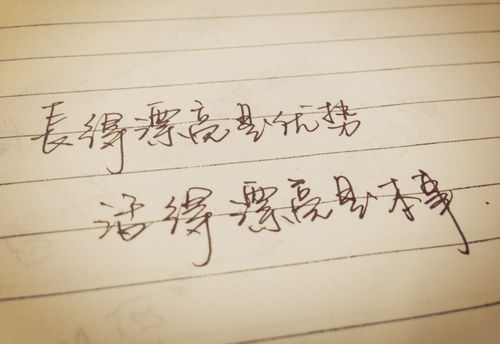 長得漂亮是优势
活得漂亮是本事.